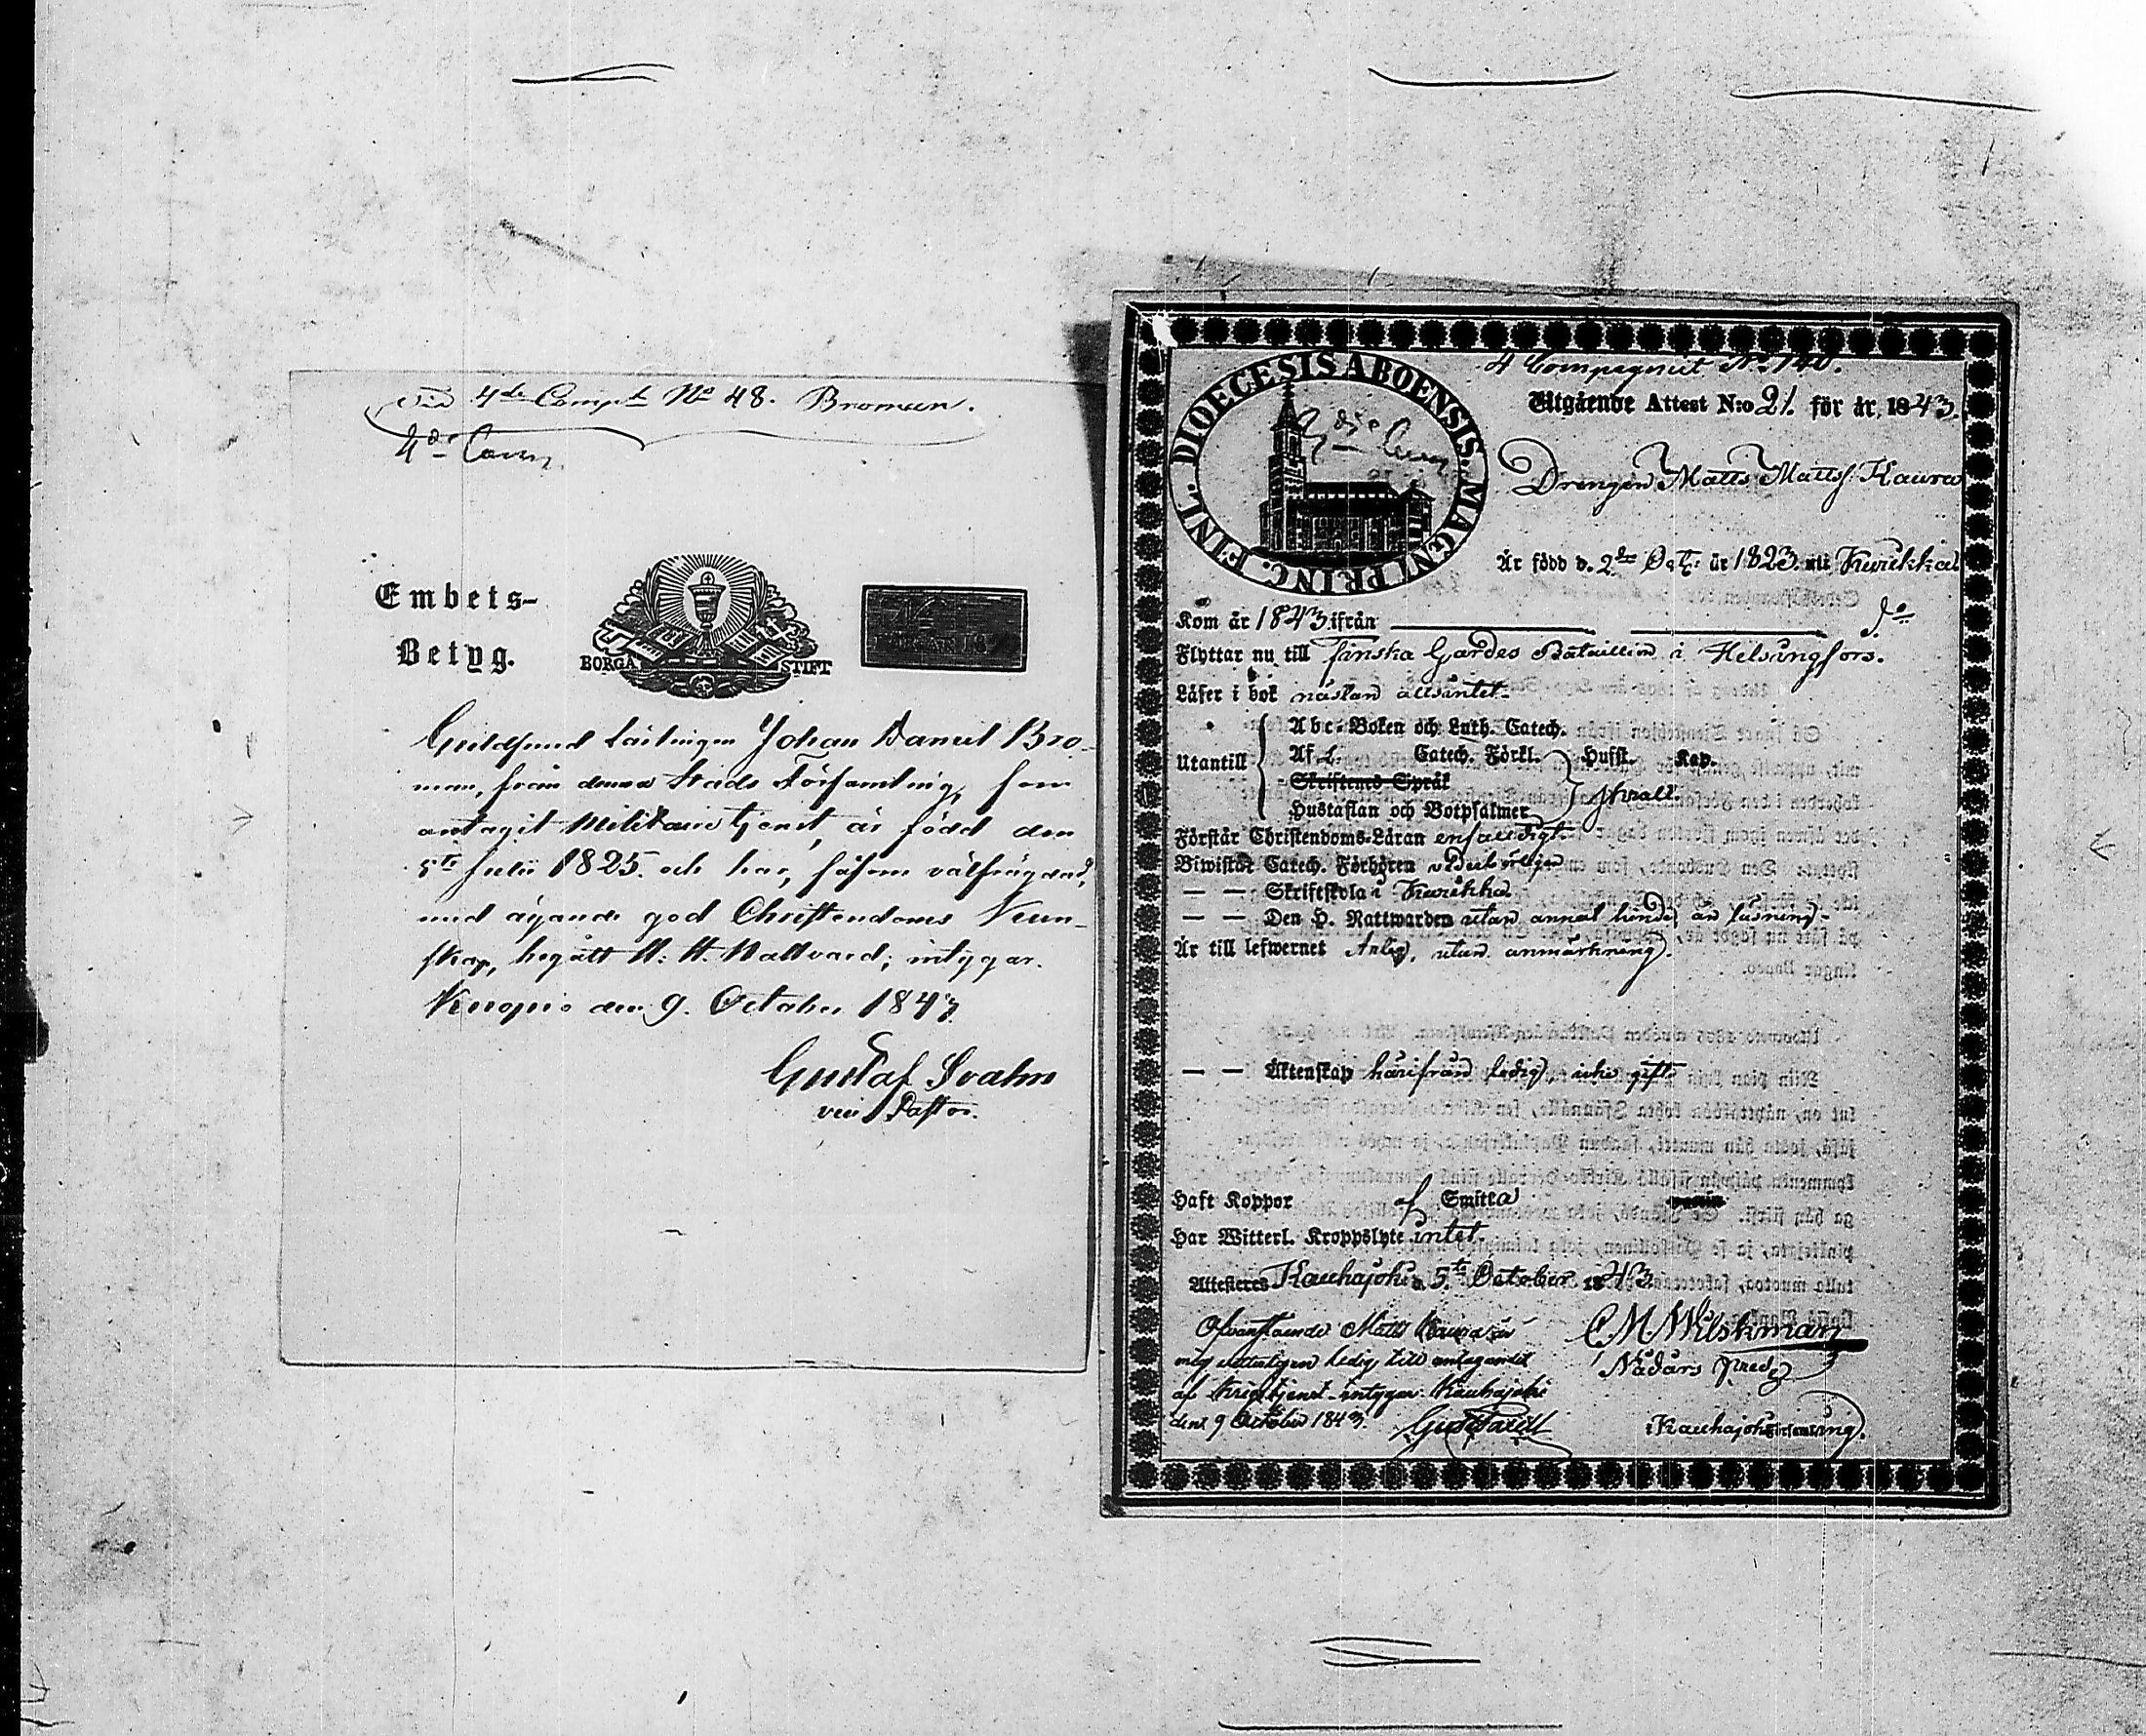 4de Compt No 48. Broman.
4de Comp.
Embets-
Betyg.
BORGÅ STIFT
Guldsmed Lärlingen Johan Daniel Bro-
man, från denna Stads Församling, som
antagit Militairetjenst, är född den
5te Julii 1825. och har, såsom välfrägdad,
med ägande god Christendoms Kun-
skap, begått H. H. Nattvard; intygar.
Kuopio den 9. October 1843.
Gustaf Svahn
vice Pastor.
4 Compagniet No 140.
DIOECESIS ABOENSIS. MAGNI PRINC. FINL.
Utgående Attest N:o 21. för år 1843.
Drengen Matts Mattss: Kaura
Är född d. 2de år 1823. uti Kurikka
Kom år 1843 ifrån do
Flyttar nu till Finska Gardes Bataillion i Helsingfors.
Läser i bok nästan allsintet.
Abc-Boken och Luth. Catech.
Utantill Af L. Catech. Förkl. Hufst. Kap.
Skriftenes Språk
Hustaflan och Botpsalmer
Förstår Christendoms-Läran enfaldigt.
Biwistat Catech. Förhören
— — Skriftskola i Kurikka
— — Den H. Nattwarden utan annat hinder än läsning.
Är till lefwernet Ärlig, utan anmärkning.
— — Äktenskap härifrån ledig, icke gift.
Haft Koppor af Smitta
Har Witterl. Kroppslyte intet.
Attesteres Kauhajoki d. 5te October 1843.
Ofvanstående Matts Kaura är
C M Wilskman
mig veterligen ledig till antagandet
Nådårs Pred.
af Krigstjenst intygar. Kauhajoki
den 9 October 1843.
i Kauhajoki Församling.